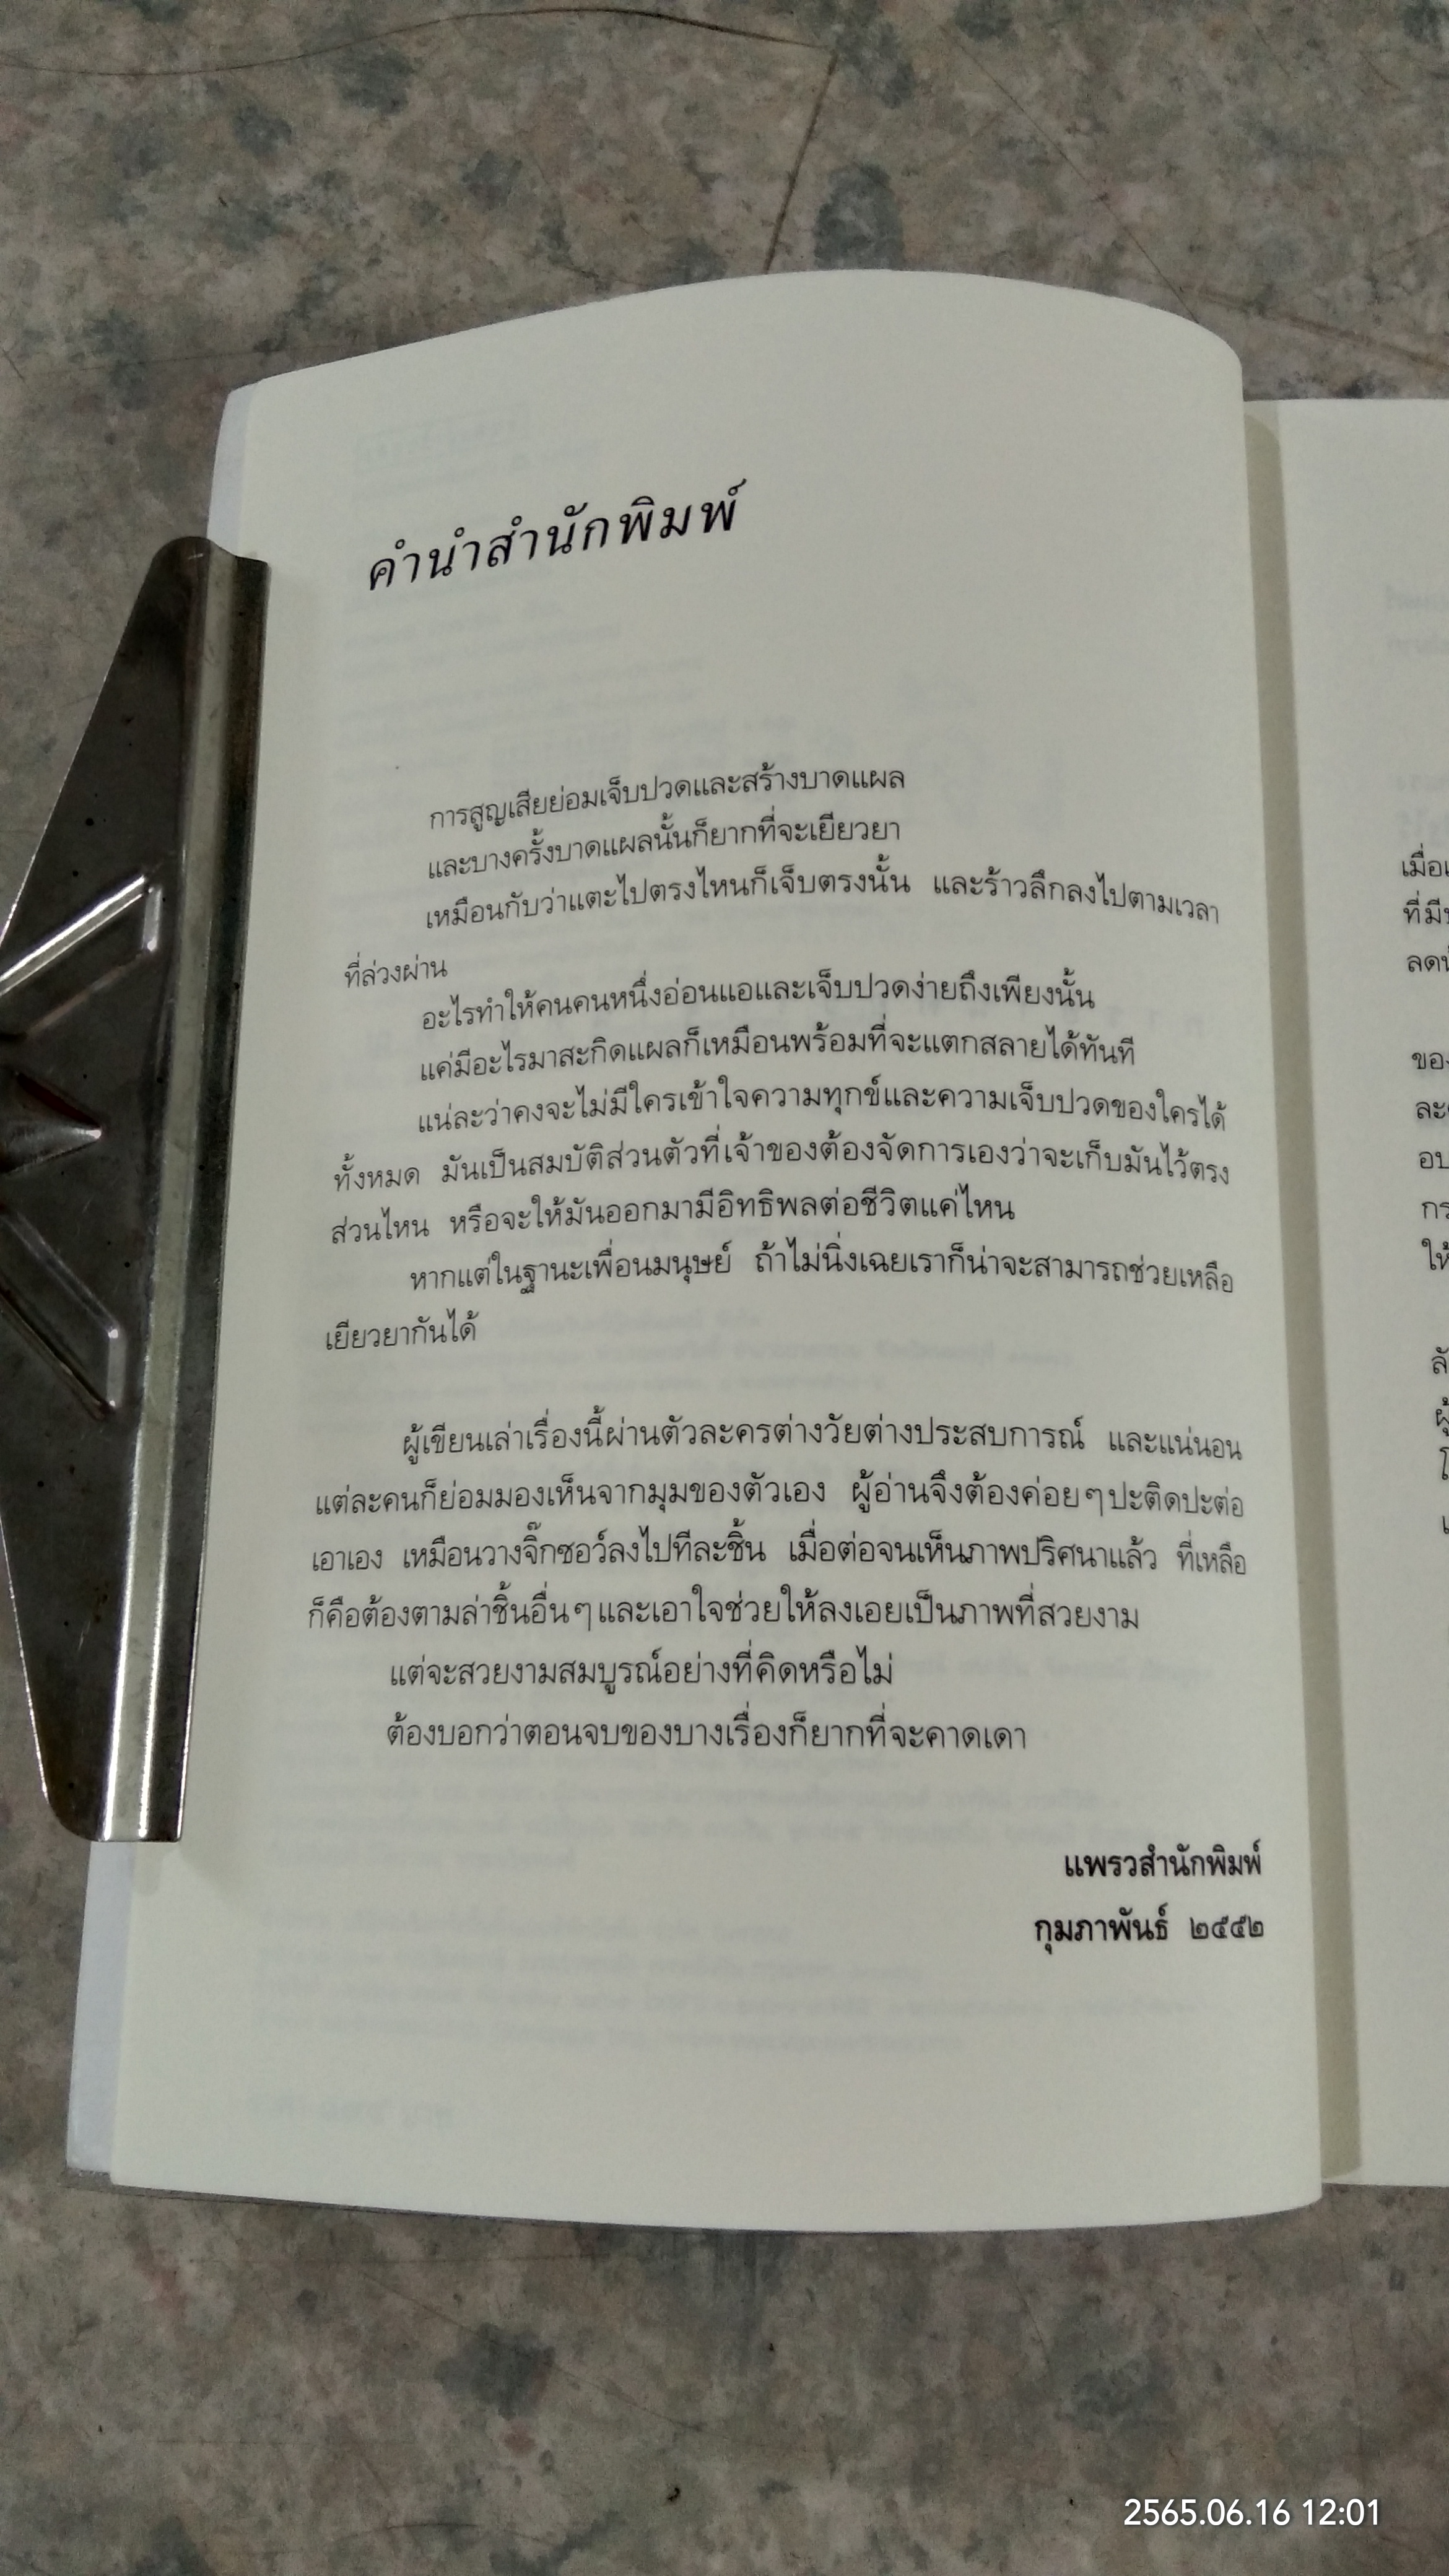 คำนำสำนักพิมพ์
การสูญเสียย่อมเจ็บปวดและสร้างบาดแผล
และบางครั้งบาดแผลนั้นก็ยากที่จะเยียวยา
เหมือนกับว่าแตะไปตรงไหนก็เจ็บตรงนั้น และร้าวลึกลงไปตามเวลา
ที่ล่วงผ่าน
อะไรทำให้คนคนหนึ่งอ่อนแอและเจ็บปวดง่ายถึงเพียงนั้น
แค่มีอะไรมาสะกิดแผลก็เหมือนพร้อมที่จะแตกสลายได้ทันที
แน่ละว่าคงจะไม่มีใครเข้าใจความทุกข์และความเจ็บปวดของใครได้
ทั้งหมด มันเป็นสมบัติส่วนตัวที่เจ้าของต้องจัดการเองว่าจะเก็บมันไว้ตรง
ส่วนไหน หรือจะให้มันออกมามีอิทธิพลต่อชีวิตแค่ไหน
หากแต่ในฐานะเพื่อนมนุษย์ ถ้าไม่นิ่งเฉยเราก็น่าจะสามารถช่วยเหลือ
เยียวยากันได้
ผู้เขียนเล่าเรื่องนี้ผ่านตัวละครต่างวัยต่างประสบการณ์ และแน่นอน
แต่ละคนก็ย่อมมองเห็นจากมุมของตัวเอง ผู้อ่านจึงต้องค่อยๆปะติดปะต่อ
เอาเอง เหมือนวางจิ๊กซอว์ลงไปทีละชิ้น เมื่อต่อจนเห็นภาพปริศนาแล้ว ที่เหลือ
ก็คือต้องตามล่าชิ้นอื่นๆและเอาใจช่วยให้ลงเอยเป็นภาพที่สวยงาม
แต่จะสวยงามสมบูรณ์อย่างที่คิดหรือไม่
ต้องบอกว่าตอนจบของบางเรื่องก็ยากที่จะคาดเดา
แพรวสำนักพิมพ์
กุมภาพันธ์ ๒๕๕๒
2565.06.16 12:01